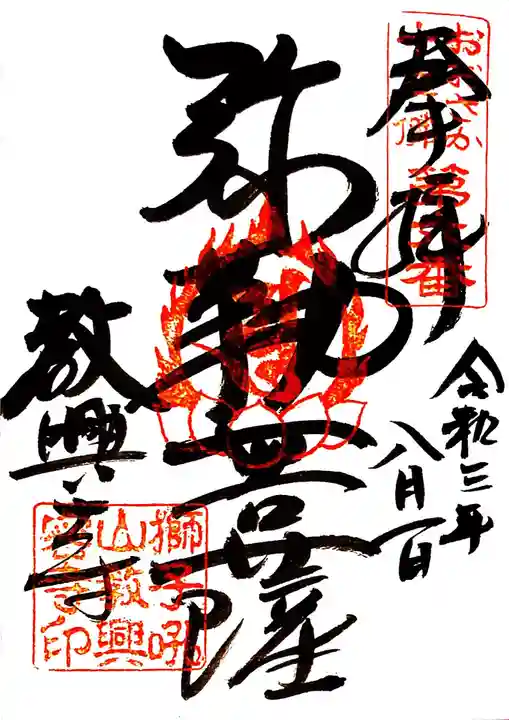 奉拝
おおさか
十三佛
第六番
令和三年
八月一日
弥勒菩薩
教興寺
獅子吼
山教興
寺印